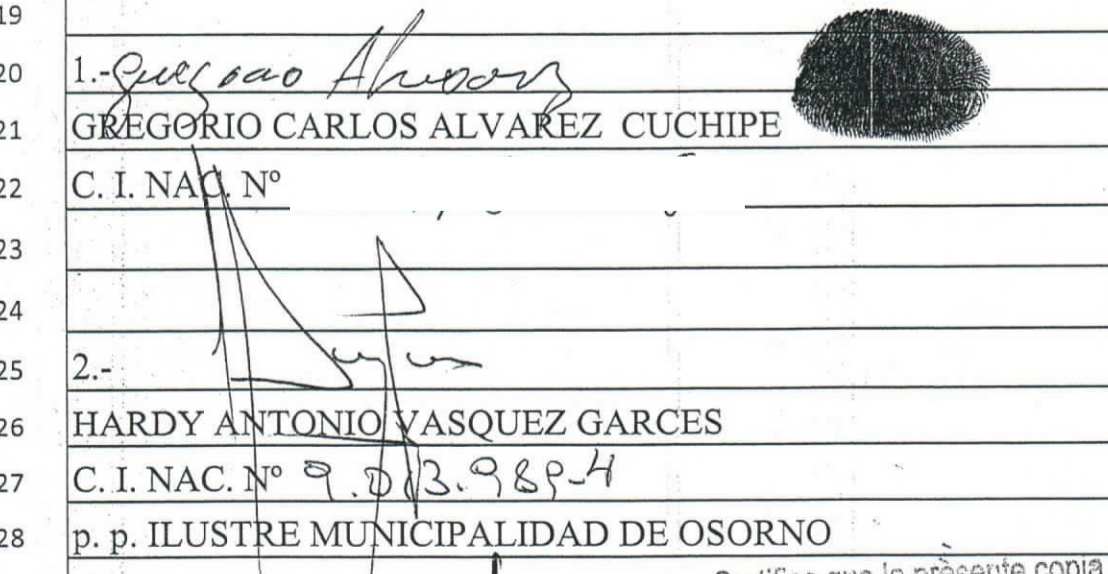 19
20 1.- Gregorio Alvarez
21 GREGORIO CARLOS ALVAREZ CUCHIPE
22 C. I. NAC. Nº
23
24
25 2.-
26 HARDY ANTONIO VASQUEZ GARCES
27 C. I. NAC. Nº 9.013.989-4
28 p. p. ILUSTRE MUNICIPALIDAD DE OSORNO
que la presente copia